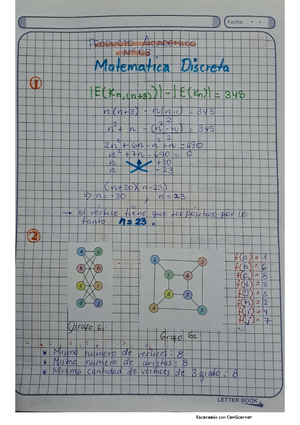 Fecha:
PRODUCTO ACADEMICO
N° 03
Matematica Discreta
①
|E(Kn,(n+3))| - |E(Kn)| = 345
n(n+3) - n(n-1) = 345
2
n² + n - (n² - n) = 345
2
2n² + 6n - n² + n = 690
n² + 7n - 690 = 0
n +30
n -23
(n+30)(n-23)
⇒ n = -30 , n = 23
→ el vertice tiene que ser positivo por lo
tanto n = 23.
②
f(a) = 1
f(b) = 6
f(c) = 8
f(d) = 3
f(g) = 5
f(h) = 2
f(i) = 4
f(j) = 7
Grafo G1
Grafo G2
* Mismo numero de vertices: 8
* Mismo numero de aristas: 8
* Misma cantidad de vertices de 3 grado: 8
LETTER BOOK
Escaneado con CamScanner